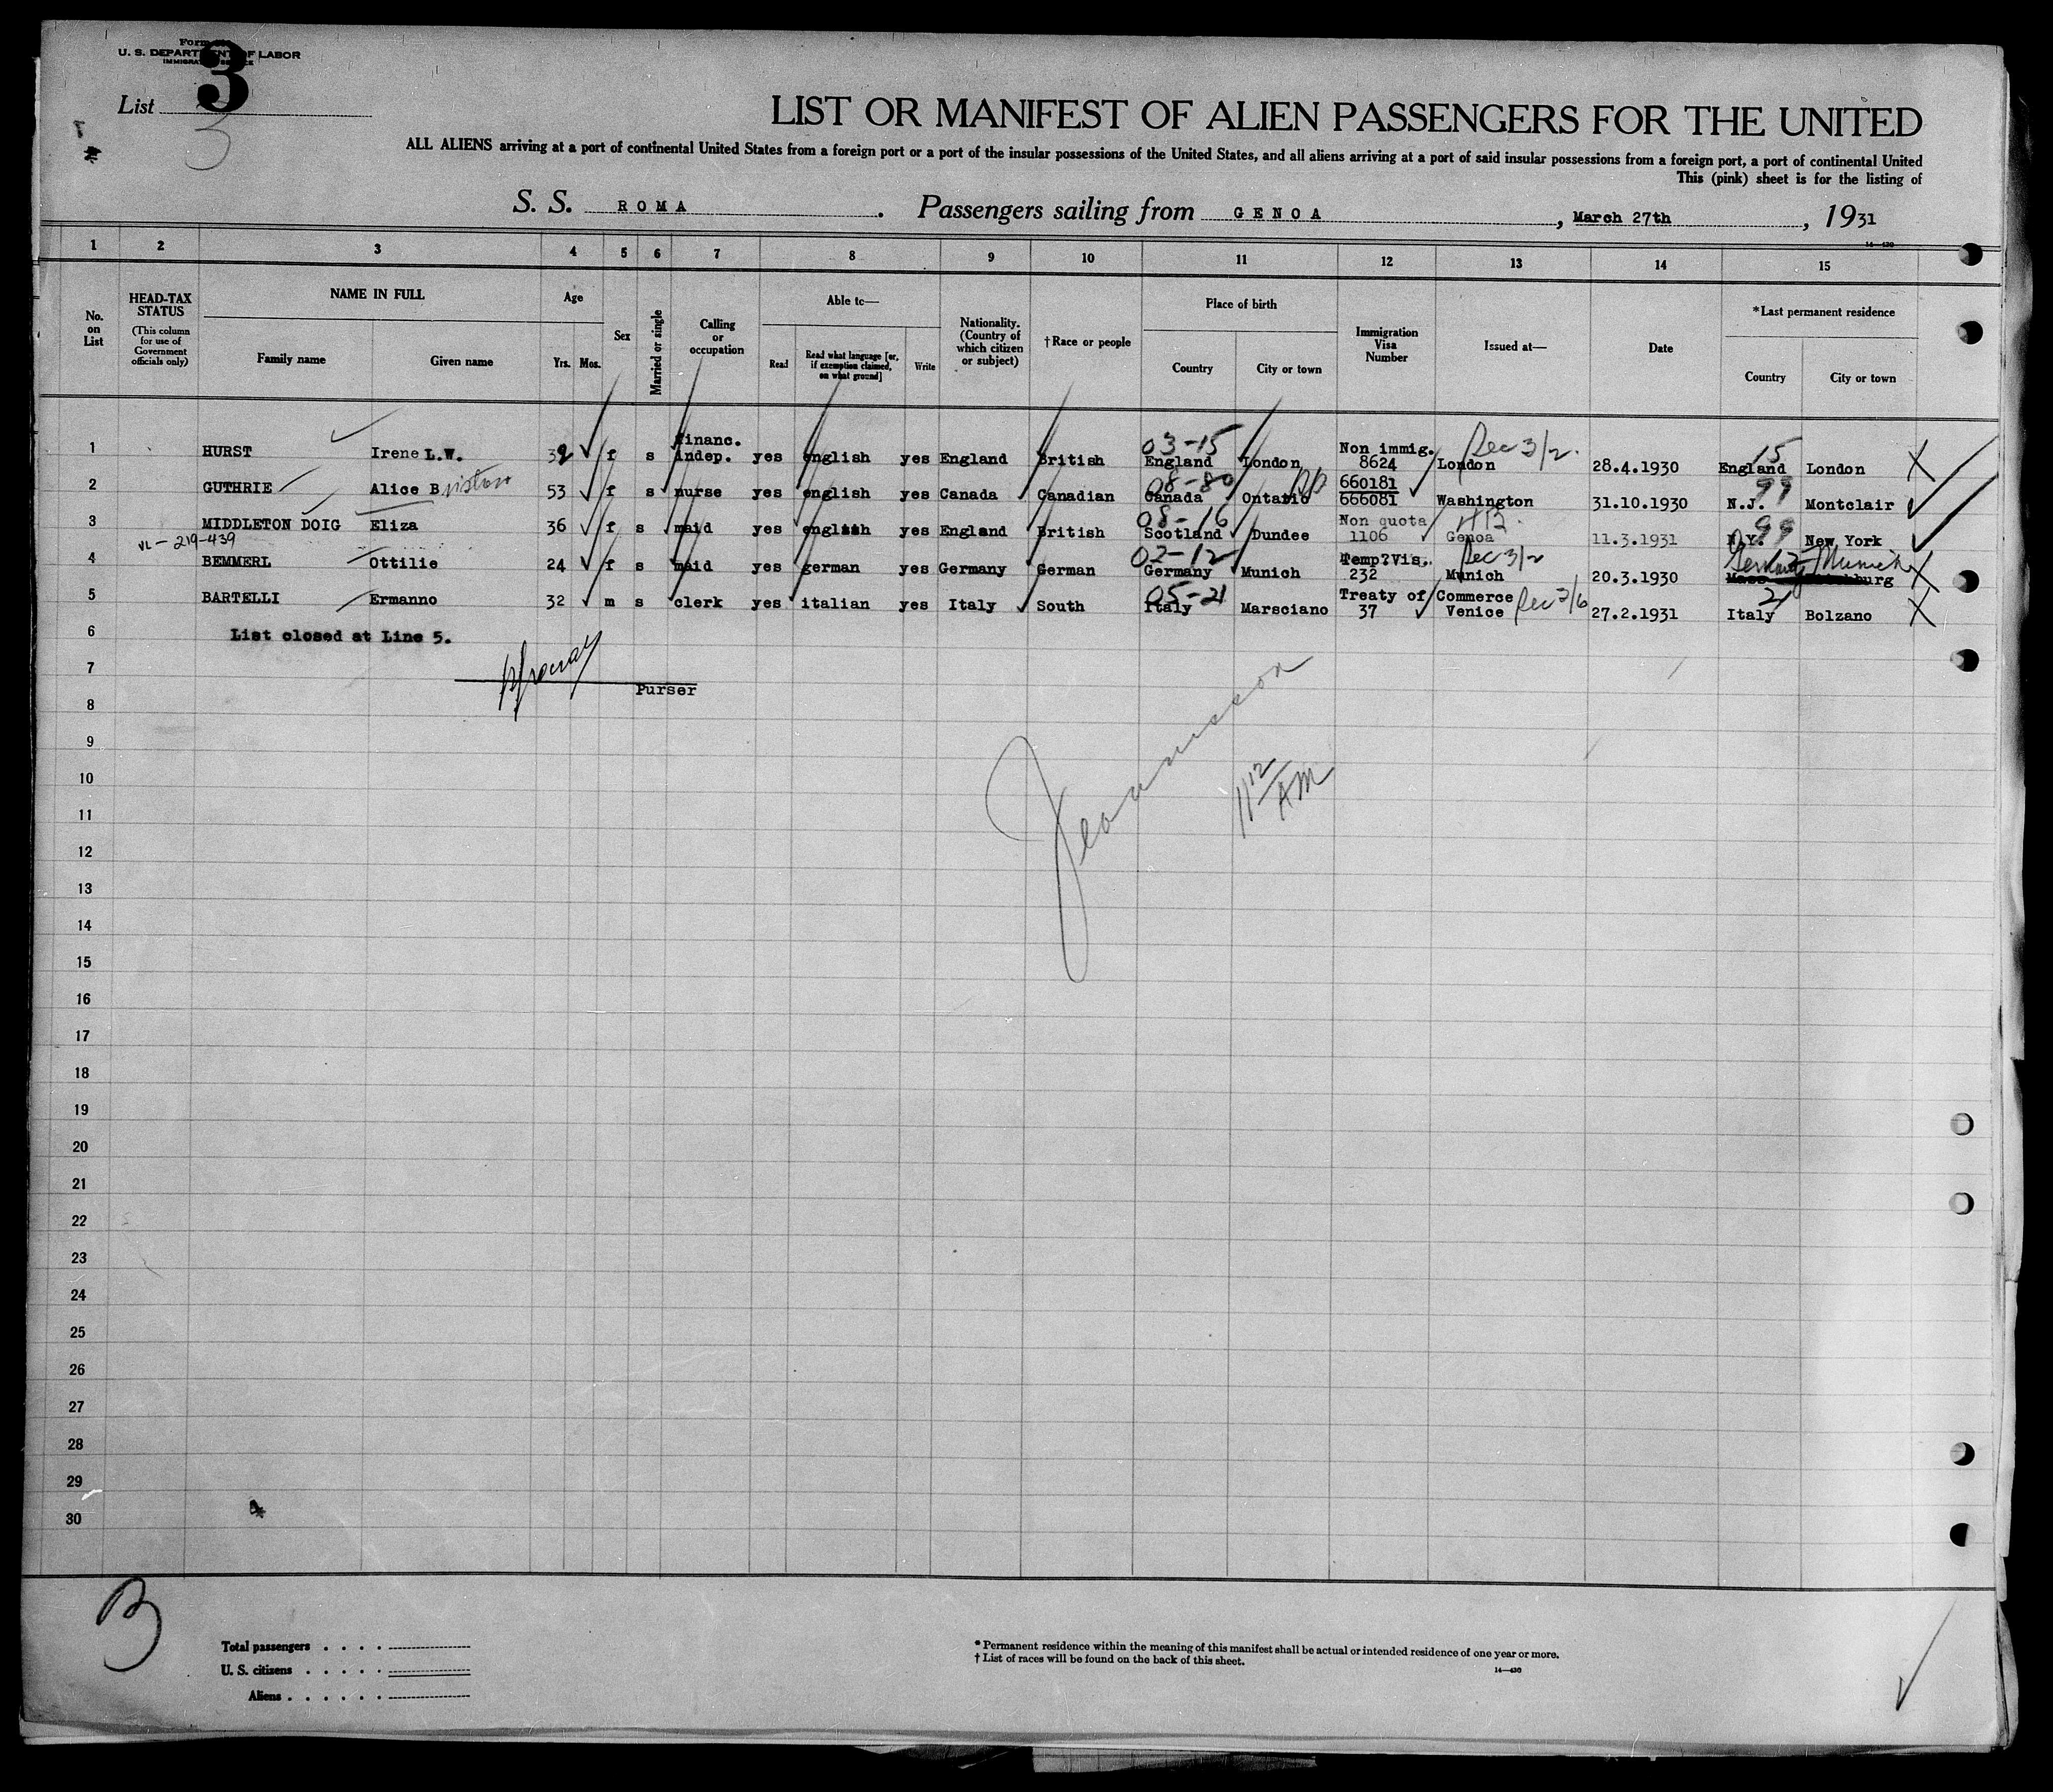 Form
U. S. DEPARTMENT OF LABOR
IMMIGRATION SERVICE
List 3
3
LIST OR MANIFEST OF ALIEN PASSENGERS FOR THE UNITED
ALL ALIENS arriving at a port of continental United States from a foreign port or a port of the insular possessions of the United States, and all aliens arriving at a port of said insular possessions from a foreign port, a port of continental United
This (pink) sheet is for the listing of
S. S. ROMA. Passengers sailing from GENOA, March 27th, 1931
14—430
1 2 3 4 5 6 7 8 9 10 11 12 13 14 15
No. on List
HEAD-TAX STATUS
(This column for use of Government officials only)
NAME IN FULL
Family name Given name
Age
Yrs. Mos.
Sex
Married or single
Calling or occupation
Able to—
Read Read what language [or, if exemption claimed, on what ground] Write
Nationality. (Country of which citizen or subject)
†Race or people
Place of birth
Country City or town
Immigration Visa Number
Issued at—
Date
*Last permanent residence
Country City or town
financ. 03-15 Non immig. Rec 3/2. 15
1 HURST Irene L.W. 39 f s indep. yes english yes England British England London 8624 London 28.4.1930 England London X
08-80 660181 99
2 GUTHRIE Alice Bristow 53 f s nurse yes english yes Canada Canadian Canada Ontario 666081 Washington 31.10.1930 N.J. Montclair
08-16 Non quota 99
3 MIDDLETON DOIG Eliza 36 f s maid yes english yes England British Scotland Dundee 1106 Genoa 11.3.1931 N.Y. New York
VL-219-439 02-12 Temp?Vis. Rec 3/2 Germany Munich
4 BEMMERL Ottilie 24 f s maid yes german yes Germany German Germany Munich 232 Munich 20.3.1930 Mass X
05-21 Treaty of Commerce Rec 3/6 21
5 BARTELLI Ermanno 32 m s clerk yes italian yes Italy South Italy Marsciano 37 Venice 27.2.1931 Italy Bolzano X
6 List closed at Line 5.
7
Purser
8
9
10
11 12 AM
11
12
13
14
15
16
17
18
19
20
21
22
23
24
25
26
27
28
29
30
B
Total passengers . . . .
U. S. citizens . . . . .
Aliens . . . . . .
* Permanent residence within the meaning of this manifest shall be actual or intended residence of one year or more.
† List of races will be found on the back of this sheet.
14—430